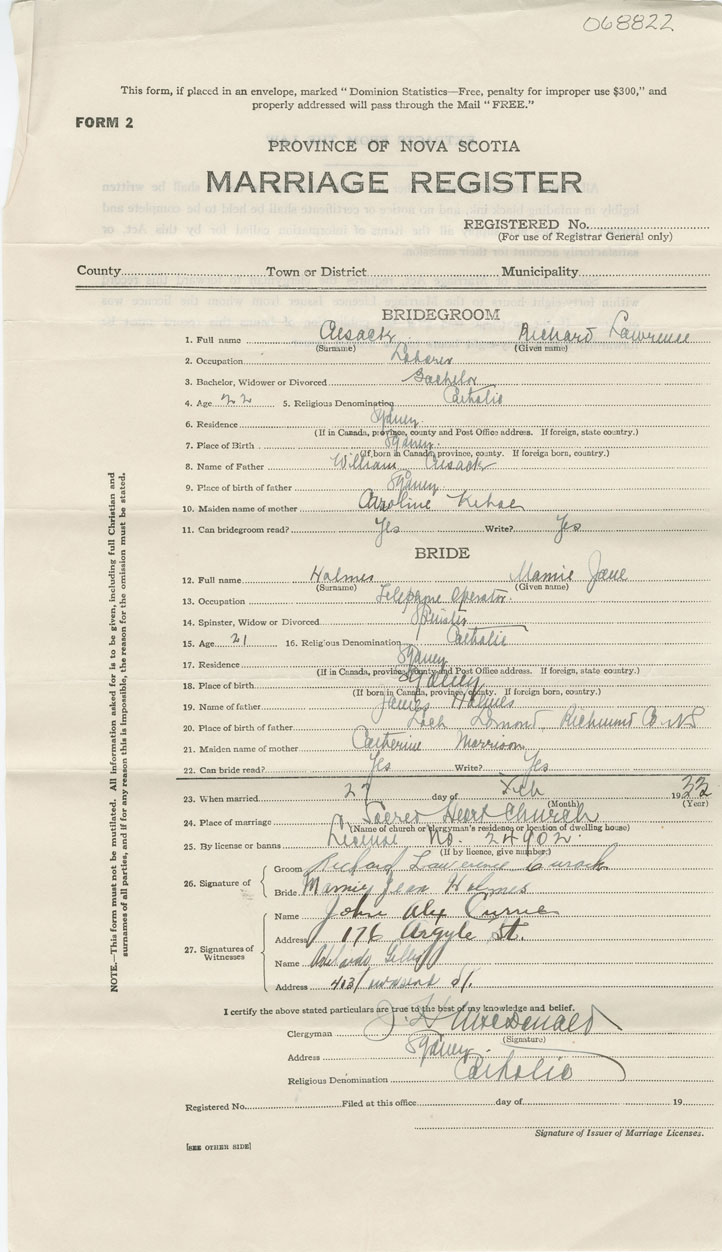 068822
This form, if placed in an envelope, marked "Dominion Statistics—Free, penalty for improper use $300," and
properly addressed will pass through the Mail "FREE."
FORM 2
PROVINCE OF NOVA SCOTIA
MARRIAGE REGISTER
REGISTERED No.
(For use of Registrar General only)
County Town or District Municipality
BRIDEGROOM
1. Full name Cusack Richard Lawrence
(Surname) (Given name)
2. Occupation Laborer
3. Bachelor, Widower or Divorced Bachelor
4. Age 22 5. Religious Denomination Catholic
6. Residence Sydney
(If in Canada, province, county and Post Office address. If foreign, state country.)
7. Place of Birth Sydney
(If born in Canada, province, county. If foreign born, country.)
8. Name of Father William Cusack
9. Place of birth of father Sydney
10. Maiden name of mother Caroline Kehoe
11. Can bridegroom read? Yes Write? Yes
BRIDE
12. Full name Holmes Mamie Jane
(Surname) (Given name)
13. Occupation Telephone Operator
14. Spinster, Widow or Divorced Spinster
15. Age 21 16. Religious Denomination Catholic
17. Residence Sydney
(If in Canada, province, county and Post Office address. If foreign, state country.)
18. Place of birth Sydney
(If born in Canada, province, county. If foreign born, country.)
19. Name of father James Holmes
20. Place of birth of father Loch Lomond, Richmond Co NS
21. Maiden name of mother Catherine Morrison
22. Can bride read? Yes Write? Yes
23. When married 27 day of Feb 1933
(Month) (Year)
24. Place of marriage Sacred Heart Church
(Name of church or clergyman's residence or location of dwelling house)
25. By license or banns License No. 24902
(If by licence, give number.)
26. Signature of
Groom Richard Lawrence Cusack
Bride Mamie Jean Holmes
27. Signatures of Witnesses
Name John Alex Currie
Address 176 Argyle St.
Name
Address 403 Townsend St.
I certify the above stated particulars are true to the best of my knowledge and belief.
Clergyman MacDonald
(Signature)
Address Sydney
Religious Denomination Catholic
Registered No. Filed at this office day of 19
Signature of Issuer of Marriage Licenses.
[SEE OTHER SIDE]
NOTE.—This form must not be mutilated. All information asked for is to be given, including full Christian and
surnames of all parties, and if for any reason this is impossible, the reason for the omission must be stated.